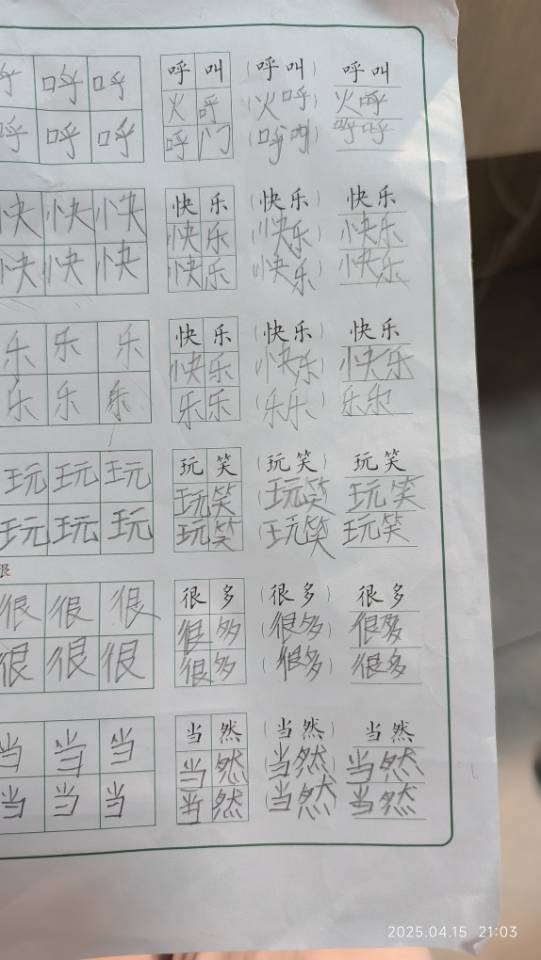 呼 呼 呼 呼 叫 (呼 叫) 呼 叫
火 呼 (火 呼) 火 呼
呼 呼 呼 呼 门 (呼 叫) 呼 呼
快 快 快 快 乐 (快 乐) 快 乐
快 乐 (快 乐) 快 乐
快 快 快 快 乐 (快 乐) 快 乐
乐 乐 乐 快 乐 (快 乐) 快 乐
快 乐 (快 乐) 快 乐
乐 乐 乐 乐 乐 (乐 乐) 乐 乐
玩 玩 玩 玩 笑 (玩 笑) 玩 笑
玩 笑 (玩 笑) 玩 笑
玩 玩 玩 玩 笑 (玩 笑) 玩 笑
很
很 很 很 很 多 (很 多) 很 多
很 多 (很 多) 很 多
很 很 很 很 多 (很 多) 很 多
当 当 当 当 然 (当 然) 当 然
当 然 (当 然) 当 然
当 当 当 当 然 (当 然) 当 然
2025.04.15 21:03